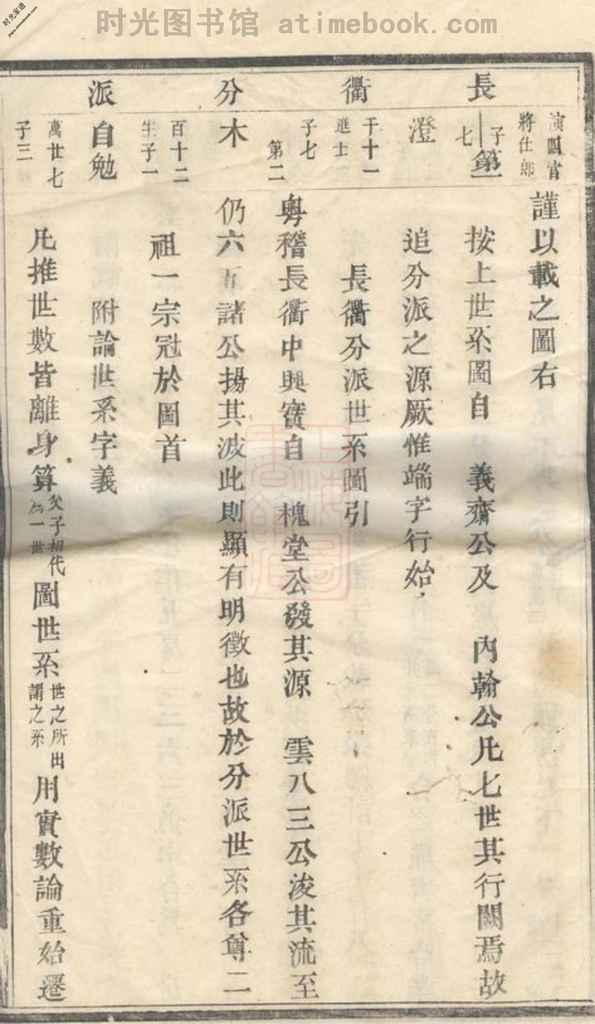 时光图书馆 atimebook.com
时光家谱
長衢分派
演畈官
將仕郎
長
子
七
第一
澄
干十一
進士
子七
第二
木
百十二
生子一
自勉
萬世七
子三
謹以載之圖右
按上世系圖自 義齋公及 內翰公凡七世其行闕焉故
追分派之源厥惟端字行始
長衢分派世系圖引
粵稽長衢中興實自 槐堂公發其源 雲八三公浚其流至
仍六五諸公揚其波此則顯有明徵也故於分派世系各尊二
祖一宗冠於圖首
附論世系字義
凡推世數皆離身算父子相代為一世圖世系世之所出謂之系用實數論重始遷